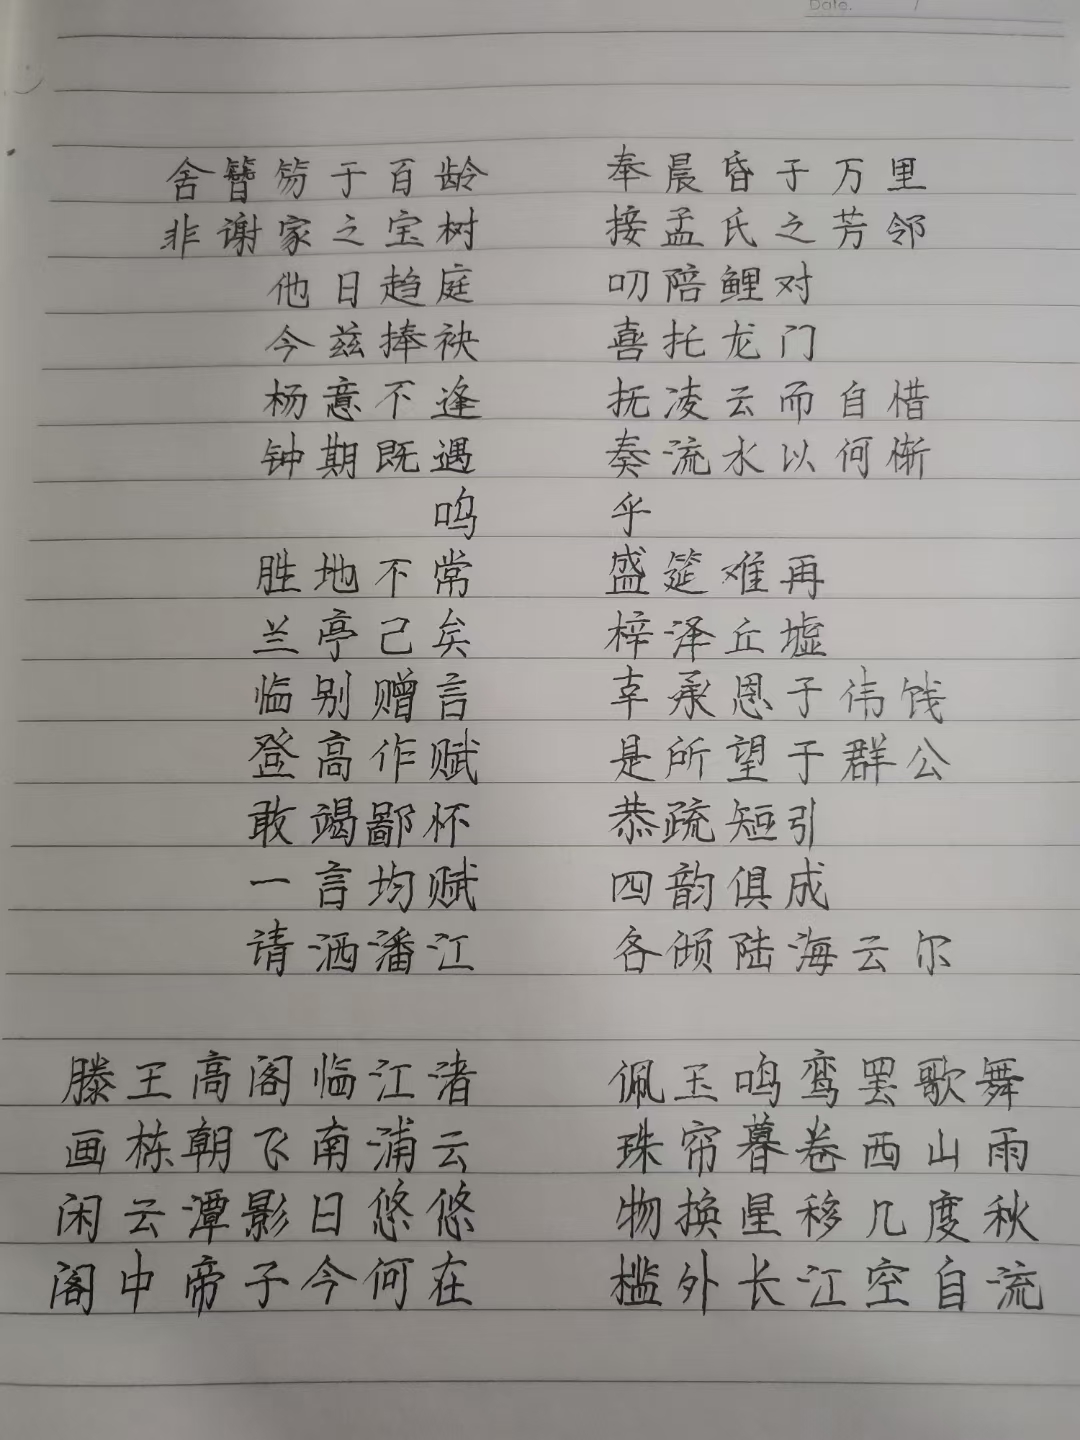 Date.
舍簪笏于百龄 奉晨昏于万里
非谢家之宝树 接孟氏之芳邻
他日趋庭 叨陪鲤对
今兹捧袂 喜托龙门
杨意不逢 抚凌云而自惜
钟期既遇 奏流水以何惭
呜 乎
胜地不常 盛筵难再
兰亭已矣 梓泽丘墟
临别赠言 幸承恩于伟饯
登高作赋 是所望于群公
敢竭鄙怀 恭疏短引
一言均赋 四韵俱成
请洒潘江 各倾陆海云尔
滕王高阁临江渚 佩玉鸣鸾罢歌舞
画栋朝飞南浦云 珠帘暮卷西山雨
闲云潭影日悠悠 物换星移几度秋
阁中帝子今何在 槛外长江空自流